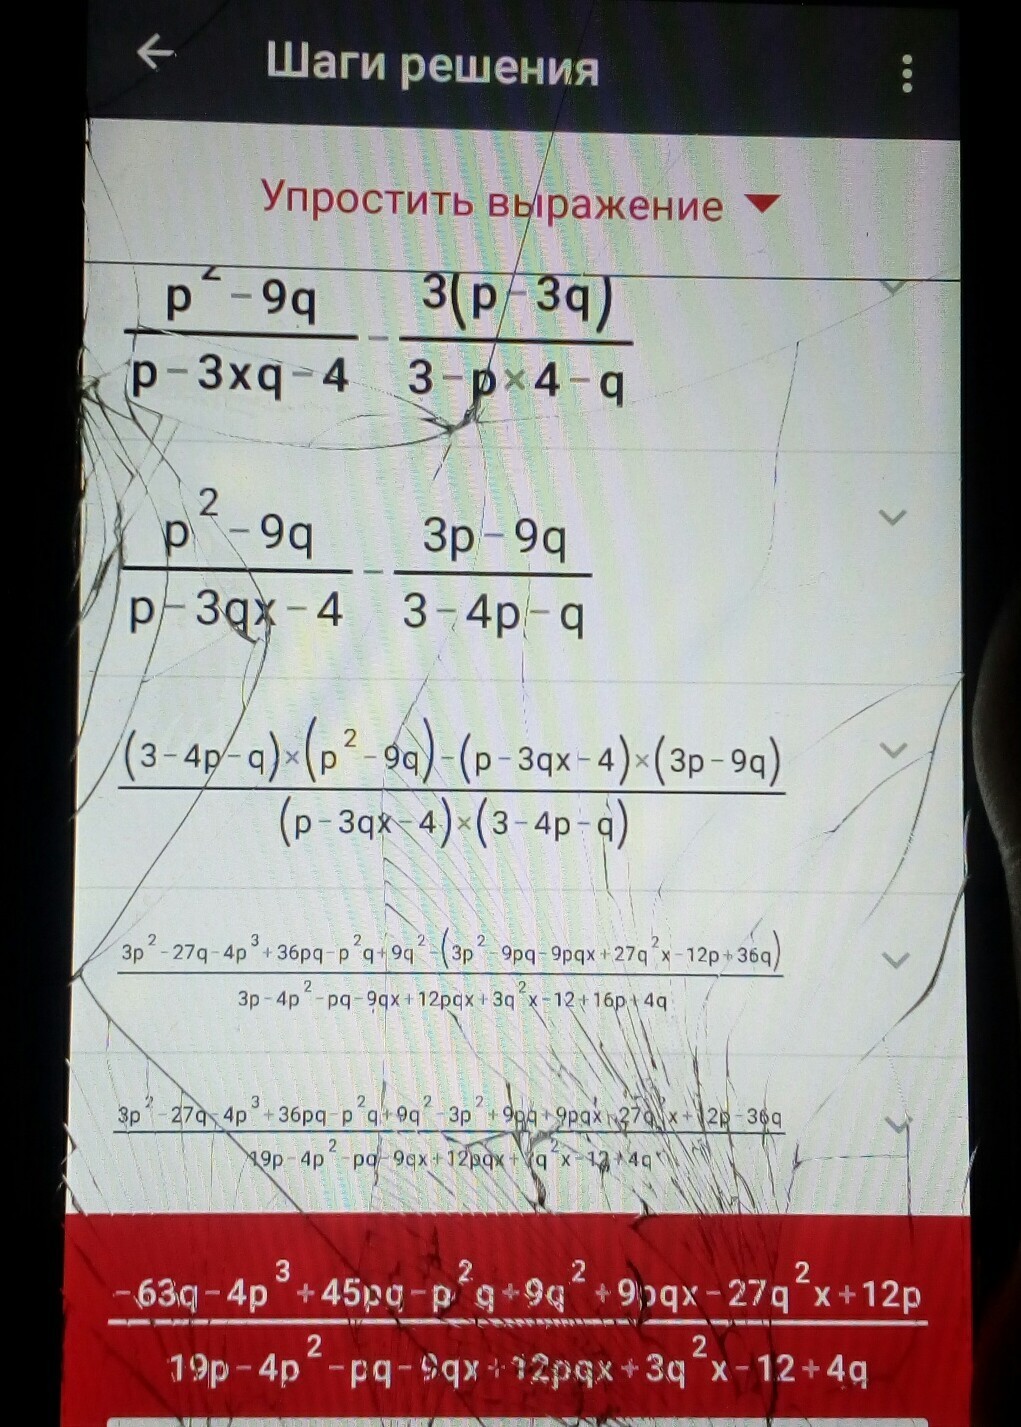 Шаги решения
Упростить выражение
p² - 9q
p - 3xq - 4
-
3(p - 3q)
3 - p × 4 - q
p² - 9q
p - 3qx - 4
-
3p - 9q
3 - 4p - q
(3 - 4p - q) × (p² - 9q) - (p - 3qx - 4) × (3p - 9q)
(p - 3qx - 4) × (3 - 4p - q)
3p² - 27q - 4p³ + 36pq - p²q + 9q² - (3p² - 9pq - 9pqx + 27q²x - 12p + 36q)
3p - 4p² - pq - 9qx + 12pqx + 3q²x - 12 + 16p + 4q
3p² - 27q - 4p³ + 36pq - p²q + 9q² - 3p² + 9pq + 9pqx - 27q²x + 12p - 36q
19p - 4p² - pq - 9qx + 12pqx + 3q²x - 12 + 4q
-63q - 4p³ + 45pq - p²q + 9q² + 9pqx - 27q²x + 12p
19p - 4p² - pq - 9qx + 12pqx + 3q²x - 12 + 4q